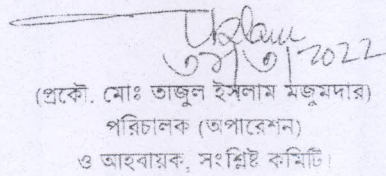 ৩১/৩/2022
(প্রকৌ. মোঃ তাজুল ইসলাম মজুমদার)
পরিচালক (অপারেশন)
ও আহবায়ক, সংশ্লিষ্ট কমিটি।